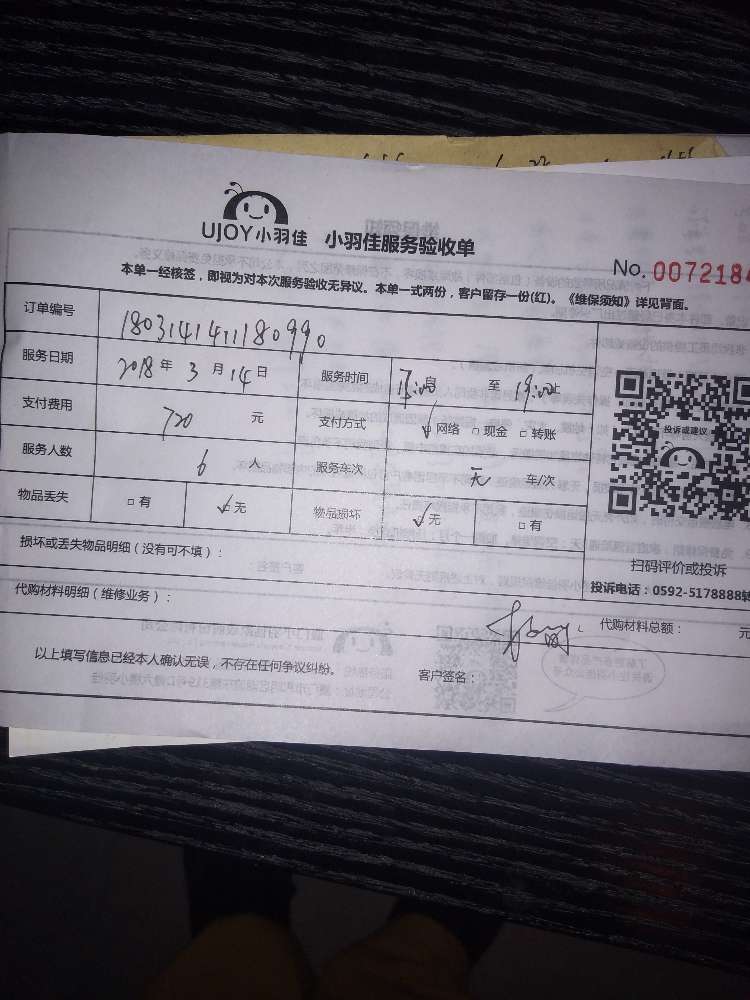 UJOY小羽佳 小羽佳服务验收单
No. 0072184
本单一经核签，即视为对本次服务验收无异议。本单一式两份，客户留存一份(红)。《维保须知》详见背面。
订单编号 180314141180990
服务日期 2018年3月14日 服务时间 自 至 19:00止
支付费用 720 元 支付方式 ☑网络 □现金 □转账
投诉或建议
服务人数 6 人 服务车次 无 车/次
物品丢失 □有 ☑无 物品损坏 ☑无 □有
扫码评价或投诉
损坏或丢失物品明细（没有可不填）：
投诉电话：0592-5178888转
代购材料明细（维修业务）： 代购材料总额： 元
以上填写信息已经本人确认无误，不存在任何争议纠纷。 客户签名：